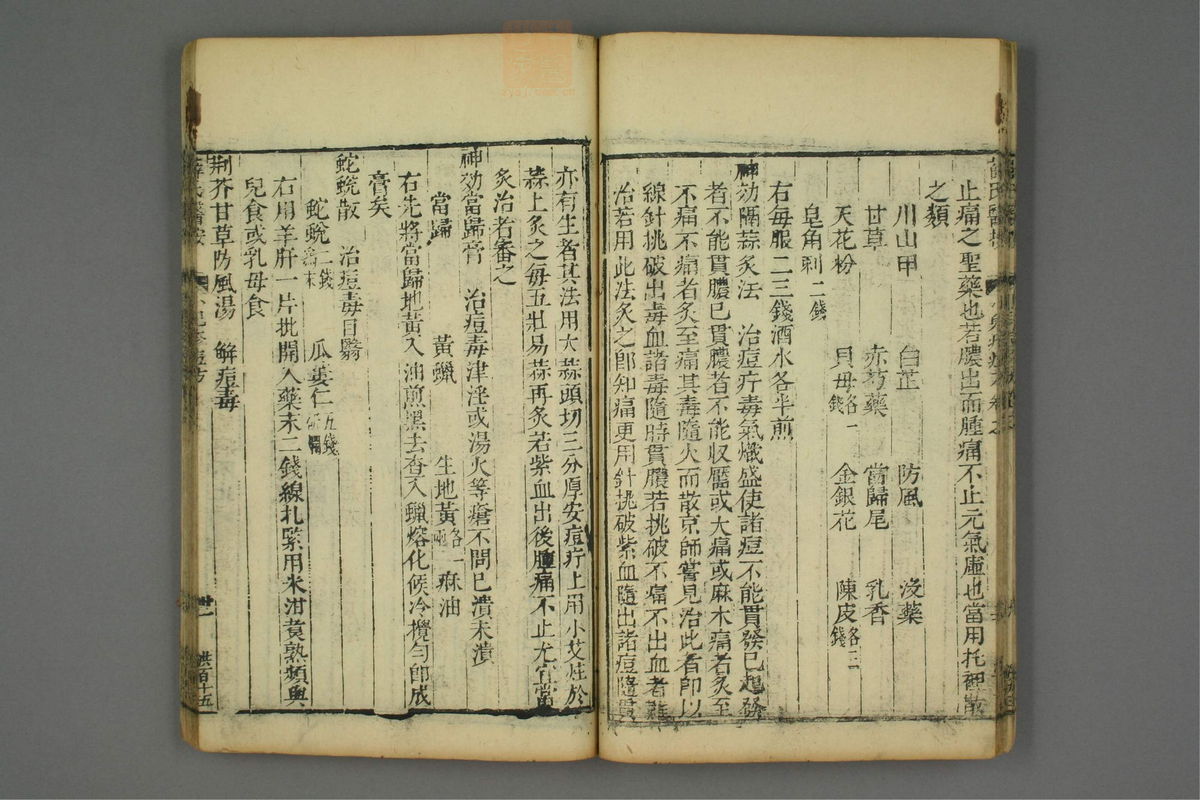 止痛之聖藥也若膿出而腫痛不止元氣虛也當用托裡散
之類
川山甲 白芷 防風 沒藥
甘草 赤芍藥 當歸尾 乳香
天花粉 貝母各一錢 金銀花 陳皮各三錢
皂角刺二錢
右每服二三錢酒水各半煎
神効隔蒜灸法 治痘疔毒氣熾盛使諸痘不能貫發已起發
者不能貫膿已貫膿者不能收靨或大痛或麻木痛者灸至
不痛不痛者灸至痛其毒隨火而散京師嘗見治此者即以
線針挑破出毒血諸毒隨時貫膿若挑破不痛不出血者難
治若用此法灸之即知痛更用針挑破紫血隨出諸痘隨貫
亦有生者其法用大蒜頭切三分厚安痘疔上用小艾炷於
蒜上灸之每五壯易蒜再灸若紫血出後腫痛不止尤宜當
灸治者審之
神効當歸膏 治痘毒津淫或湯火等瘡不問已潰未潰
當歸 黃蠟 生地黃各一兩 麻油
右先將當歸地黃入油煎黑去查入蠟熔化候冷攪勻即成
膏矣
蛇蛻散 治痘毒目翳
蛇蛻二錢為末 瓜蔞仁五錢研爛
右用羊肝一片批開入藥末二錢線扎緊用米泔煑熟頻與
兒食或乳母食
荆芥甘草防風湯 解痘毒
薛氏醫按
世一
洪百十五